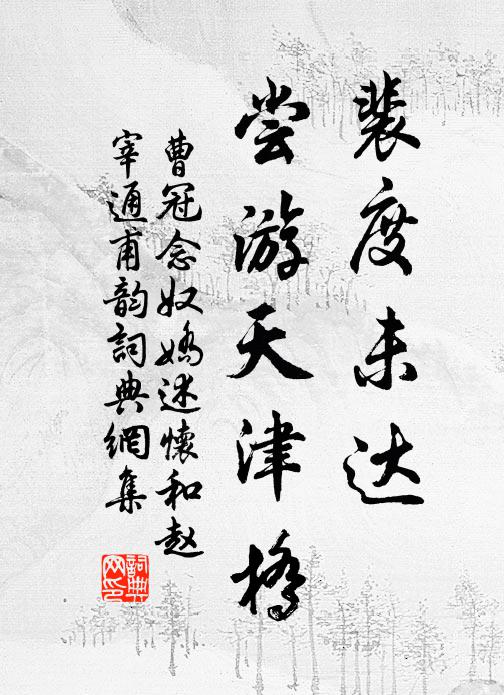 裴度未达
尝游天津桥
曹冠念奴娇述怀和赵
宰通甫韵词典网集
词典
网印